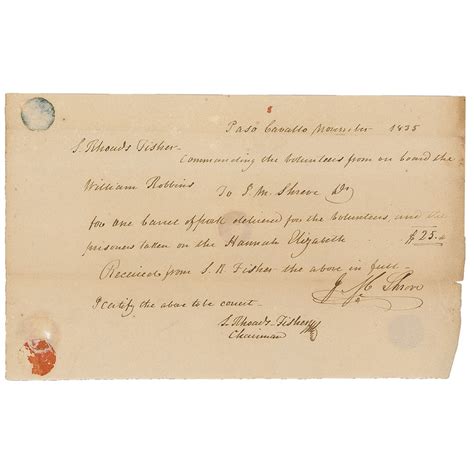 8
Paso Cavallo November 1835
S. Rhoads Fisher
Commanding the Volunteers from on board the
William Robbins To J. M. Shreve Dr
for one barrel of pork delivered for the Volunteers and the
prisoners taken on the Hannah Elizabeth $25.
Received from S. R. Fisher the above in full
J. M. Shreve
I certify the above to be correct
S. Rhoads Fisher
Chairman